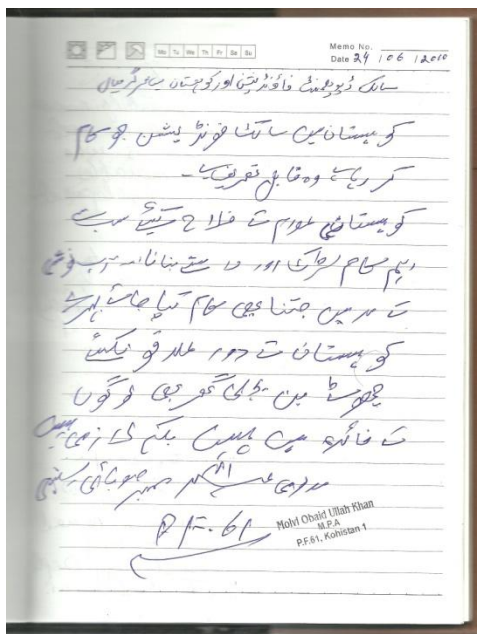 Mo Tu We Th Fr Sa Su
Memo No.
Date 24 / 06 / 2010
ڈویلپمنٹ فاؤنڈیشن اور کوہستان میں سرگرمیاں
کوہستان میں فونڈیشن جو کام
کر رہا ہے وہ قابل تعریف ہے۔
کوہستانی عوام کے فلاح کیلئے سب سے
اہم کام سڑک اور راستے بنانا اور آب نوشی
کے مد میں جتنا بھی کام کیا جائے بہتر ہے
کوہستان کے دور علاقو کیلئے
چھوٹے بن بجلی گھر بھی لوگوں
کے فائدہ میں ہیں بلکہ لازمی ہیں
ممبر صوبائی اسمبلی
P.F. 61
Molvi Obaid Ullah Khan
M.P.A
P.F.61, Kohistan 1